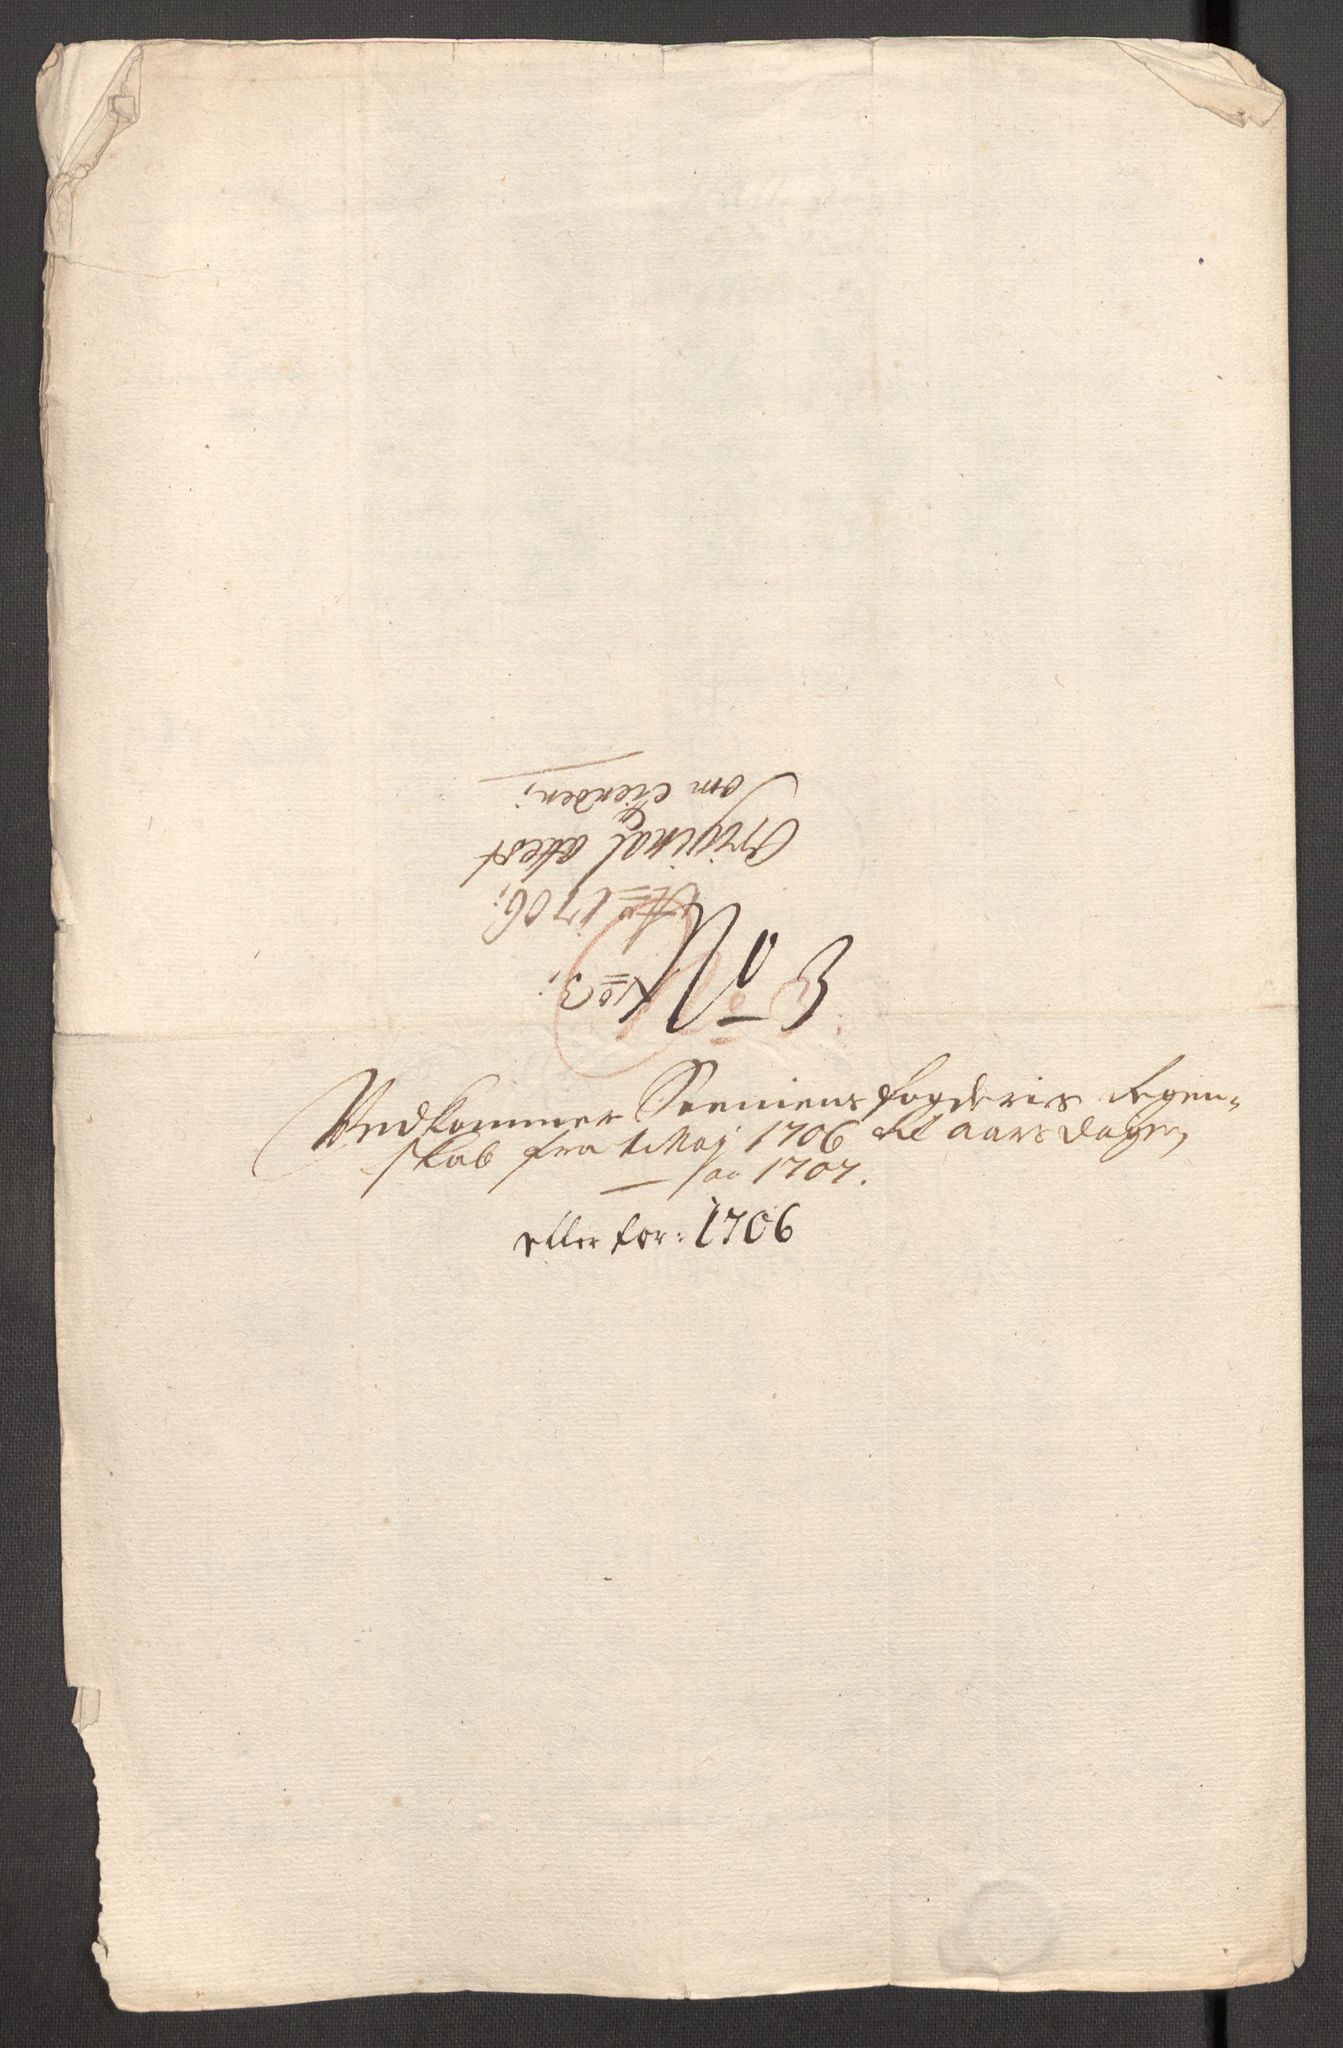 No 3;
Ao 1706;
Original attest
om tienden;
No 3
Vedkommer Senniens fogderis Regen=
skab fra 1 Maj 1706 til aarsdagen
1707.
eller for: 1706